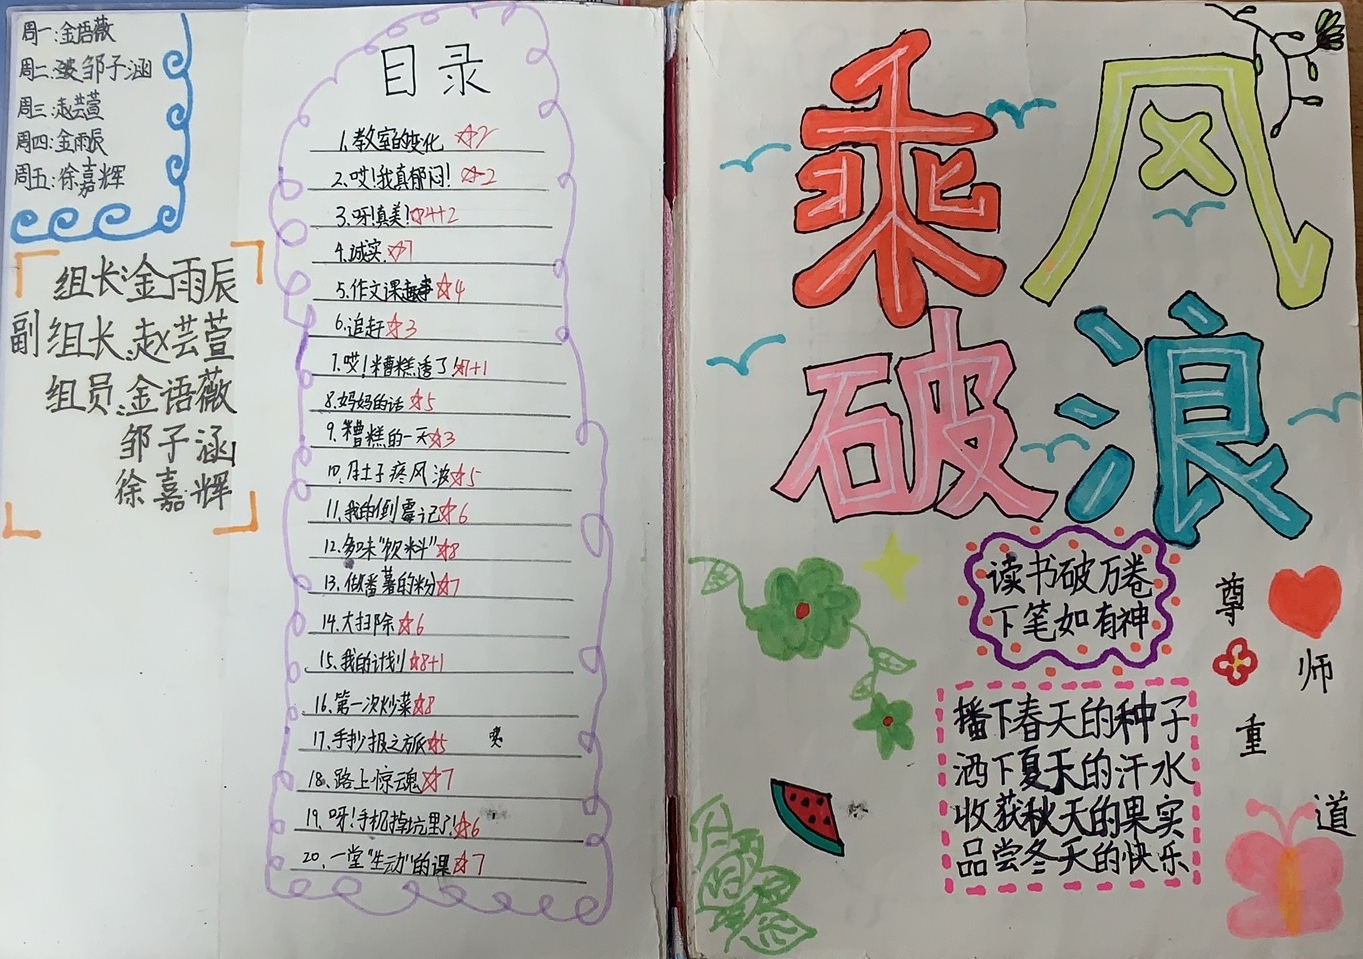 周一:金语薇
周二:邹子涵
周三:赵芸萱
周四:金雨辰
周五:徐嘉辉
组长:金雨辰
副组长:赵芸萱
组员:金语薇
邹子涵
徐嘉辉
目录
1.教室的变化 ☆2
2.哎!我真郁闷! ☆2
3.呀!真美!☆4+2
4.诚实 ☆7
5.作文课趣事☆4
6.追赶☆3
7.哎!糟糕透了☆7+1
8.妈妈的话☆5
9.糟糕的一天☆3
10.风波☆5
11.我的倒霉记☆6
12.多味“饮料”☆8
13.做番薯的粉☆7
14.大扫除☆6
15.我的计划☆8+1
16.第一次炒菜☆8
17.手抄报之方☆5
18.路上惊魂☆7
19.呀!手机掉坑里了!☆6
20.一堂“生动”的课☆7
乘风
破浪
读书破万卷
下笔如有神
尊师重道
播下春天的种子
洒下夏天的汗水
收获秋天的果实
品尝冬天的快乐